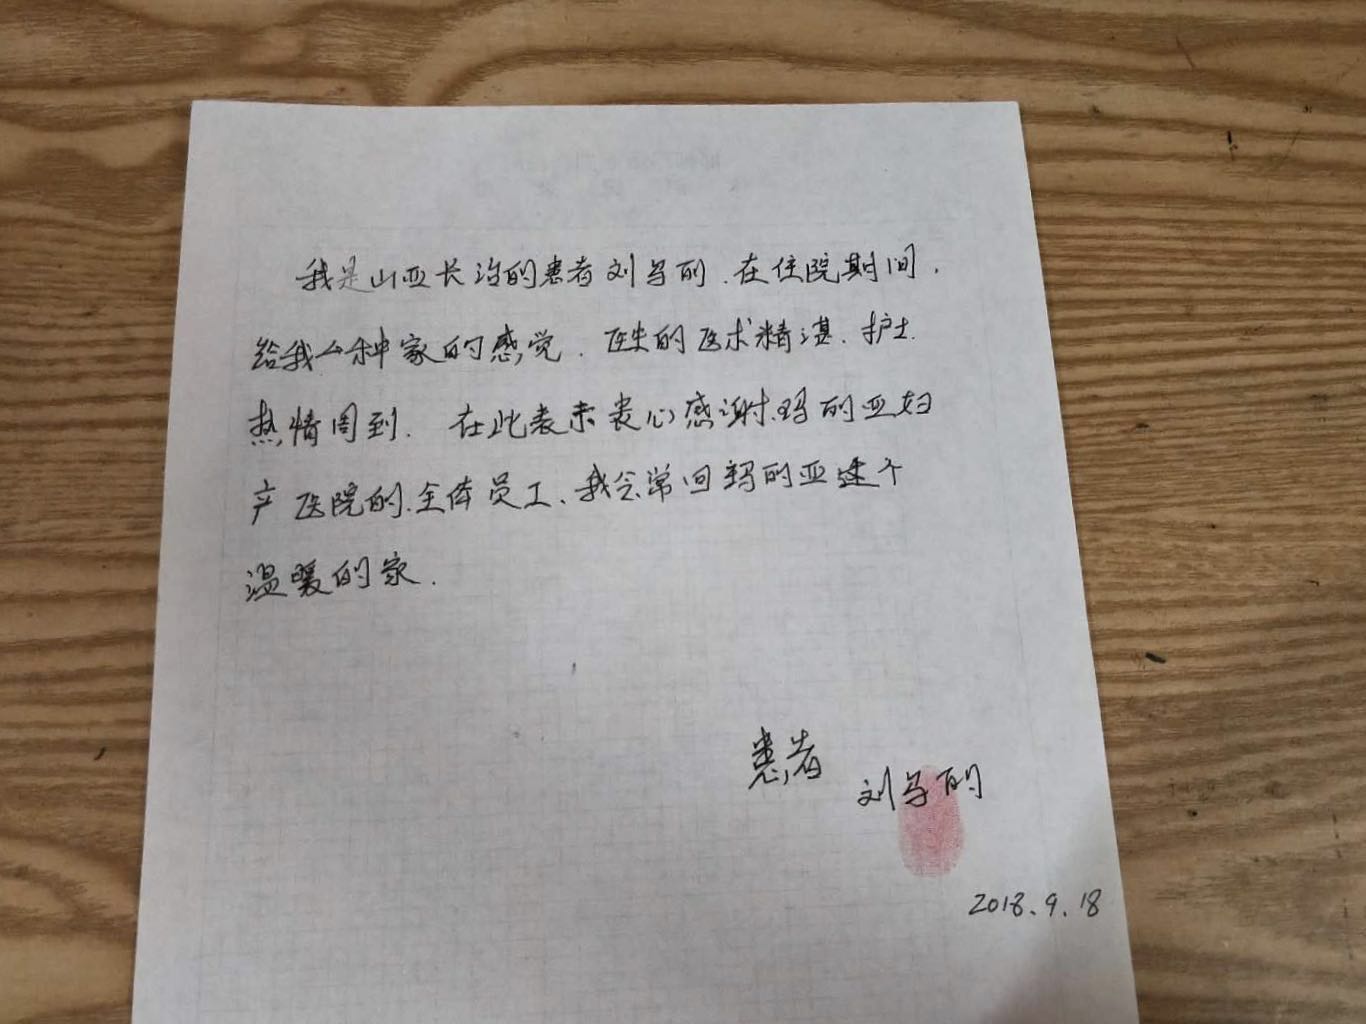 我是山西长治的患者刘写丽.在住院期间.
给我一种家的感觉.医生的医术精湛.护士
热情周到.在此表示衷心感谢.玛丽亚妇
产医院的.全体员工、我会常回玛丽亚这个
温暖的家.
患者
刘写丽
2018.9.18